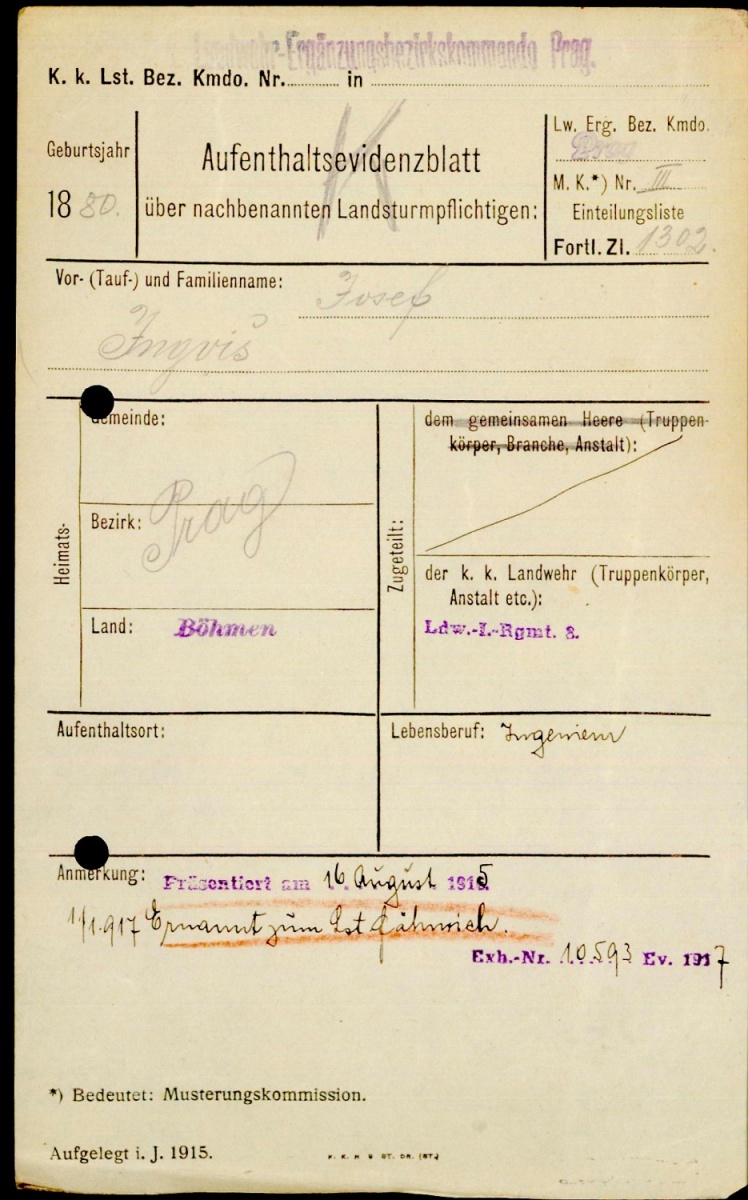 Landwehr-Ergänzungsbezirkskommando Prag.
K. k. Lst. Bez. Kmdo. Nr. in
Geburtsjahr
1880.
K
Aufenthaltsevidenzblatt
über nachbenannten Landsturmpflichtigen:
Lw. Erg. Bez. Kmdo.
Prag
M. K.*) Nr. III
Einteilungsliste
Fortl. Zl. 1302.
Vor- (Tauf-) und Familienname: Josef
Ingriš
Heimats-
Gemeinde:
Bezirk: Prag
Land: Böhmen
Zugeteilt:
dem gemeinsamen Heere (Truppen-
körper, Branche, Anstalt):
der k. k. Landwehr (Truppenkörper,
Anstalt etc.):
Ldw.-I.-Rgmt. 8.
Aufenthaltsort:
Lebensberuf: Ingenieur
Anmerkung: Präsentiert am 16. August 1915
1/1.917 Ernannt zum Lst Fähnrich.
Exh.-Nr. 10.593 Ev. 1917
*) Bedeutet: Musterungskommission.
Aufgelegt i. J. 1915.